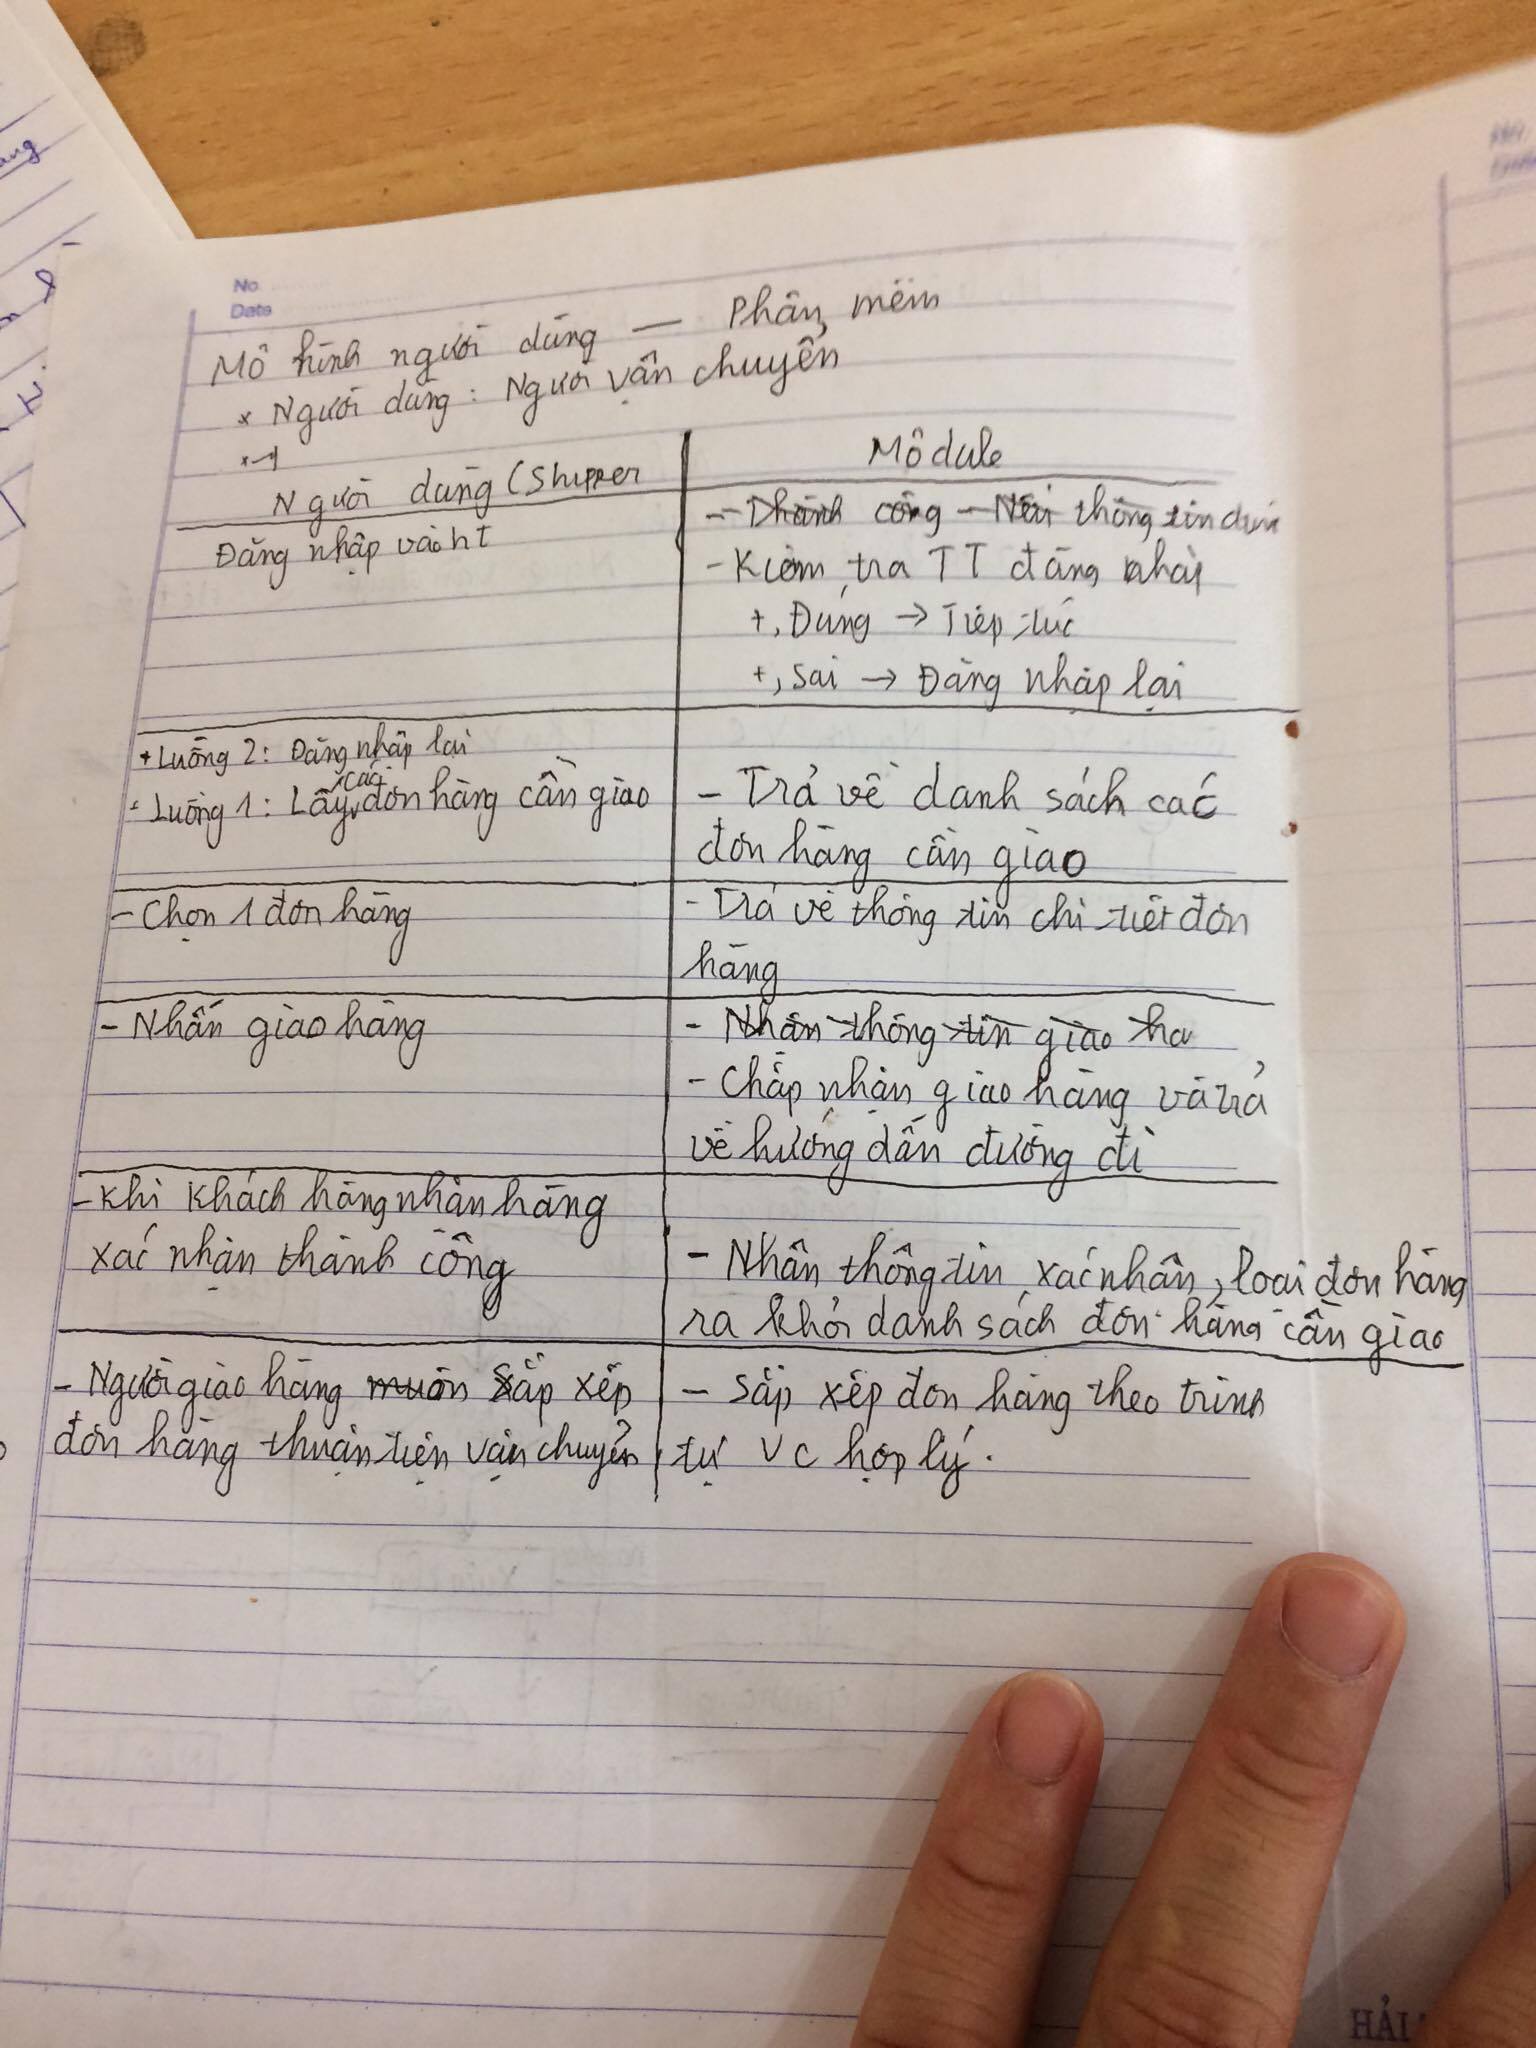 No
Date
Mô hình người dùng — Phần mềm
* Người dùng: Người vận chuyển
Người dùng (Shipper
Module
Đăng nhập vào hT
- Thành công - Nếu thông tin đún
- Kiểm tra TT đăng nhập
+, Đúng → Tiếp tục
+, Sai → Đăng nhập lại
+ Luồng 2: Đăng nhập lại
+ Luồng 1: Lấy các đơn hàng cần giao
- Trả về danh sách các
đơn hàng cần giao
- Chọn 1 đơn hàng
- Trả về thông tin chi tiết đơn
hàng
- Nhấn giao hàng
- Nhận thông tin giao ha
- Chấp nhận giao hàng và trả
về hướng dẫn đường đi
- Khi khách hàng nhận hàng
xác nhận thành công
- Nhận thông tin xác nhận, loại đơn hàng
ra khỏi danh sách đơn hàng cần giao
- Người giao hàng muốn sắp xếp
đơn hàng thuận tiện vận chuyển
- Sắp xếp đơn hàng theo trình
tự VC hợp lý.
HẢI